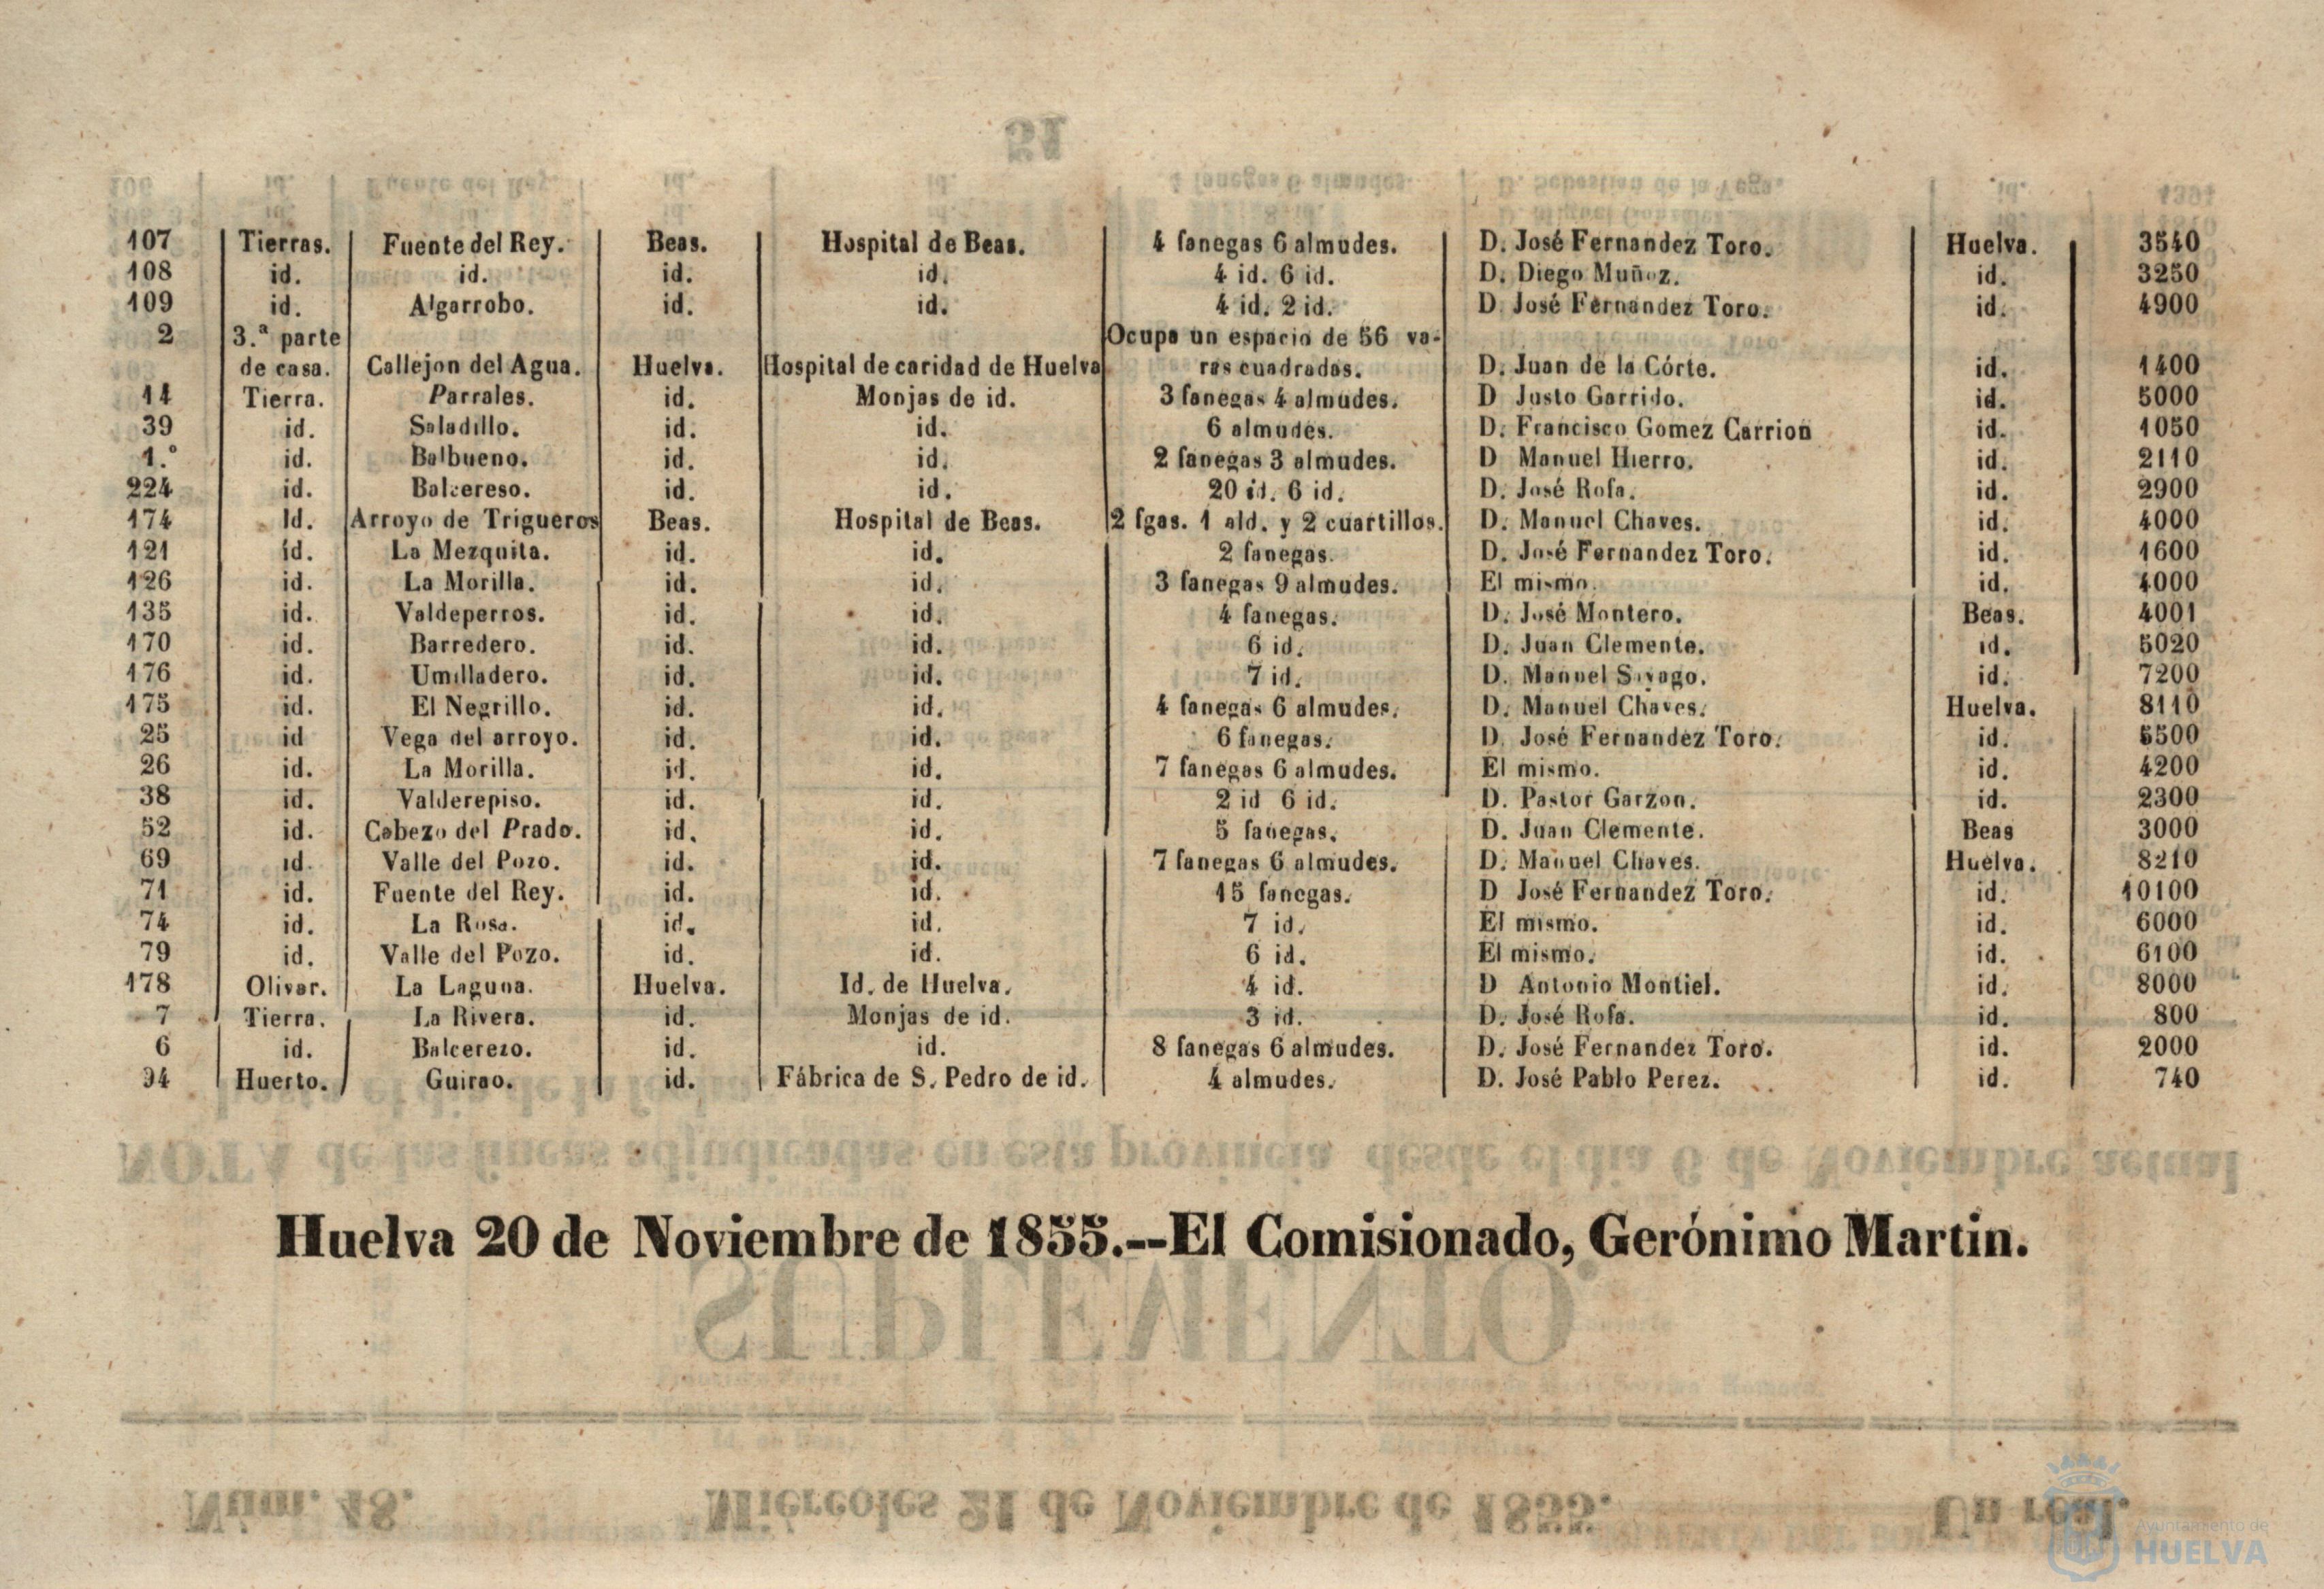 107 Tierras. Fuente del Rey. Beas. Hospital de Beas. 4 fanegas 6 almudes. D. José Fernandez Toro. Huelva. 3540
108 id. id. id. id. 4 id. 6 id. D. Diego Muñoz. id. 3250
109 id. Algarrobo. id. id. 4 id. 2 id. D. José Fernandez Toro. id. 4900
2 3.ª parte Ocupa un espacio de 56 va-
de casa. Callejon del Agua. Huelva. Hospital de caridad de Huelva ras cuadradas. D. Juan de la Córte. id. 1400
14 Tierra. Parrales. id. Monjas de id. 3 fanegas 4 almudes. D Justo Garrido. id. 5000
39 id. Saladillo. id. id. 6 almudes. D. Francisco Gomez Carrion id. 1050
1.º id. Balbueno. id. id. 2 fanegas 3 almudes. D Manuel Hierro. id. 2110
224 id. Balcereso. id. id. 20 id. 6 id. D. José Rofa. id. 2900
174 Id. Arroyo de Trigueros Beas. Hospital de Beas. 2 fgas. 1 ald. y 2 cuartillos. D. Manuel Chaves. id. 4000
121 id. La Mezquita. id. id. 2 fanegas. D. José Fernandez Toro. id. 1600
126 id. La Morilla. id. id. 3 fanegas 9 almudes. El mismo. id. 4000
135 id. Valdeperros. id. id. 4 fanegas. D. José Montero. Beas. 4001
170 id. Barredero. id. id. 6 id. D. Juan Clemente. id. 5020
176 id. Umilladero. id. id. 7 id. D. Manuel id. 7200
175 id. El Negrillo. id. id. 4 fanegas 6 almudes. D. Manuel Chaves. Huelva. 8110
25 id Vega del arroyo. id. id. 6 fanegas. D. José Fernandez Toro. id. 5500
26 id. La Morilla. id. id. 7 fanegas 6 almudes. El mismo. id. 4200
38 id. Valderepiso. id. id. 2 id 6 id. D. Pastor Garzon. id. 2300
52 id. Cabezo del Prado. id. id. 5 fanegas. D. Juan Clemente. Beas 3000
69 id. Valle del Pozo. id. id. 7 fanegas 6 almudes. D. Manuel Chaves. Huelva. 8210
71 id. Fuente del Rey. id. id. 15 fanegas. D José Fernandez Toro. id. 10100
74 id. La Rosa. id. id. 7 id. El mismo. id. 6000
79 id. Valle del Pozo. id. id. 6 id. El mismo. id. 6100
178 Olivar. La Laguna. Huelva. Id. de Huelva. 4 id. D Antonio Montiel. id. 8000
7 Tierra. La Rivera. id. Monjas de id. 3 id. D. José Rofa. id. 800
6 id. Balcerezo. id. id. 8 fanegas 6 almudes. D. José Fernandez Toro. id. 2000
94 Huerto. Guirao. id. Fábrica de S. Pedro de id. 4 almudes. D. José Pablo Perez. id. 740
Huelva 20 de Noviembre de 1855.--El Comisionado, Gerónimo Martin.
Ayuntamiento de
HUELVA